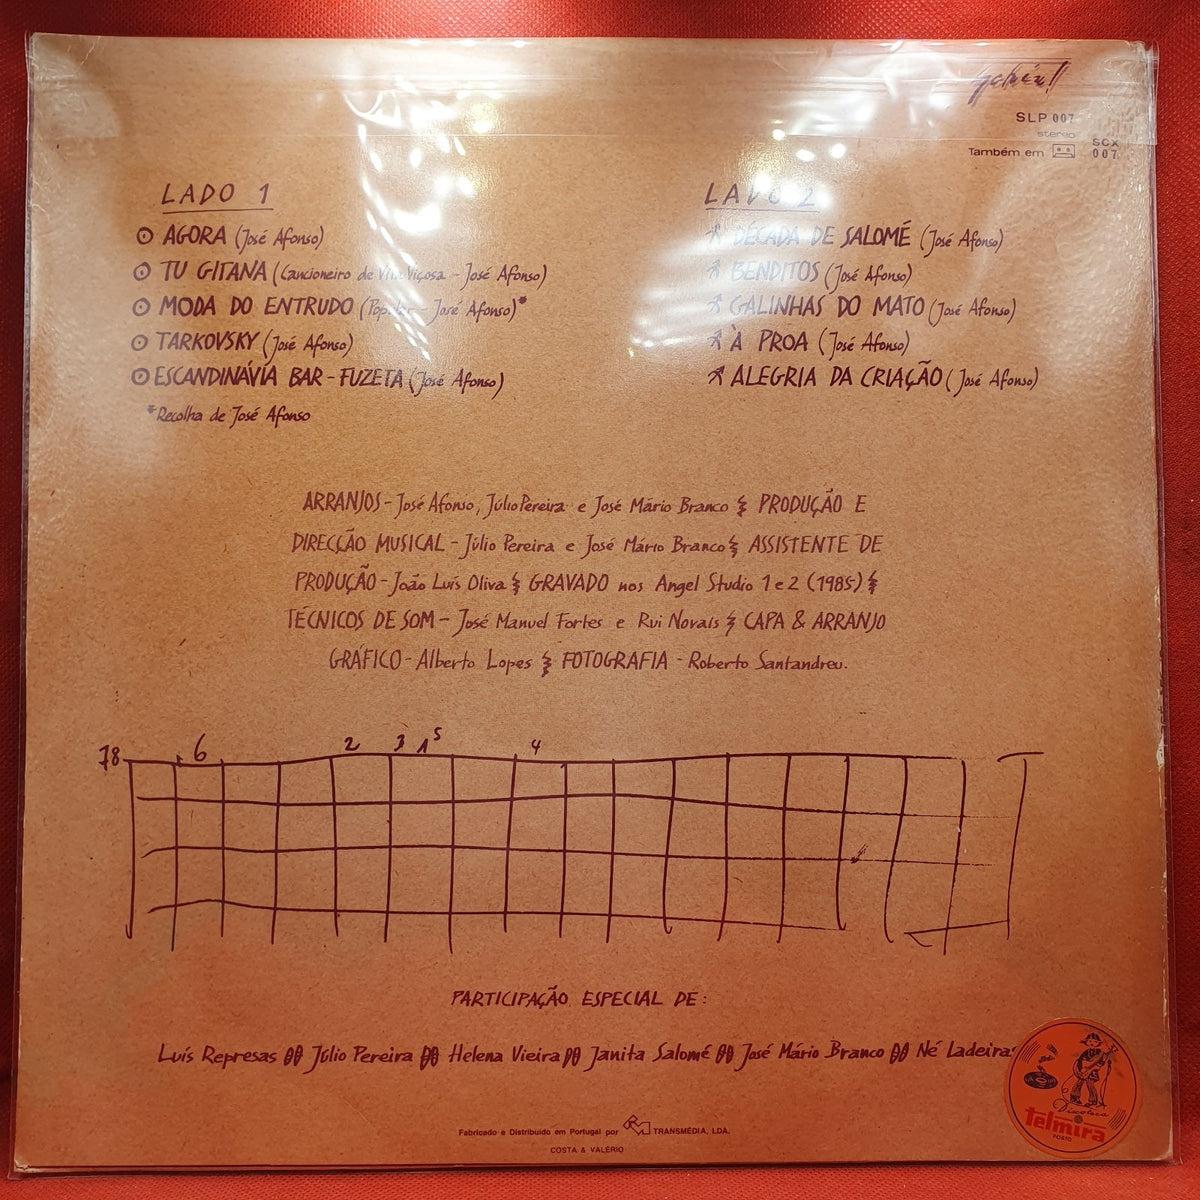 SLP 007
stereo
Também em
SCX
007
LADO 1
AGORA (José Afonso)
TU GITANA (Cancioneiro de Vila Viçosa - José Afonso)
MODA DO ENTRUDO (Popular - José Afonso)*
TARKOVSKY (José Afonso)
ESCANDINÁVIA BAR - FUZETA (José Afonso)
*Recolha de José Afonso
LADO 2
DÉCADA DE SALOMÉ (José Afonso)
BENDITOS (José Afonso)
GALINHAS DO MATO (José Afonso)
À PROA (José Afonso)
ALEGRIA DA CRIAÇÃO (José Afonso)
ARRANJOS - José Afonso, Júlio Pereira e José Mário Branco PRODUÇÃO E
DIRECÇÃO MUSICAL - Júlio Pereira e José Mário Branco ASSISTENTE DE
PRODUÇÃO - João Luís Oliva GRAVADO nos Angel Studio 1 e 2 (1985)
TÉCNICOS DE SOM - José Manuel Fortes e Rui Novais CAPA & ARRANJO
GRÁFICO - Alberto Lopes FOTOGRAFIA - Roberto Santandreu.
78 6 2 3 1 5 4
PARTICIPAÇÃO ESPECIAL DE:
Luís Represas Júlio Pereira Helena Vieira Janita Salomé José Mário Branco Né Ladeiras
Discoteca
telmira
PORTO
Fabricado e Distribuído em Portugal por TRANSMÉDIA, LDA.
COSTA & VALÉRIO